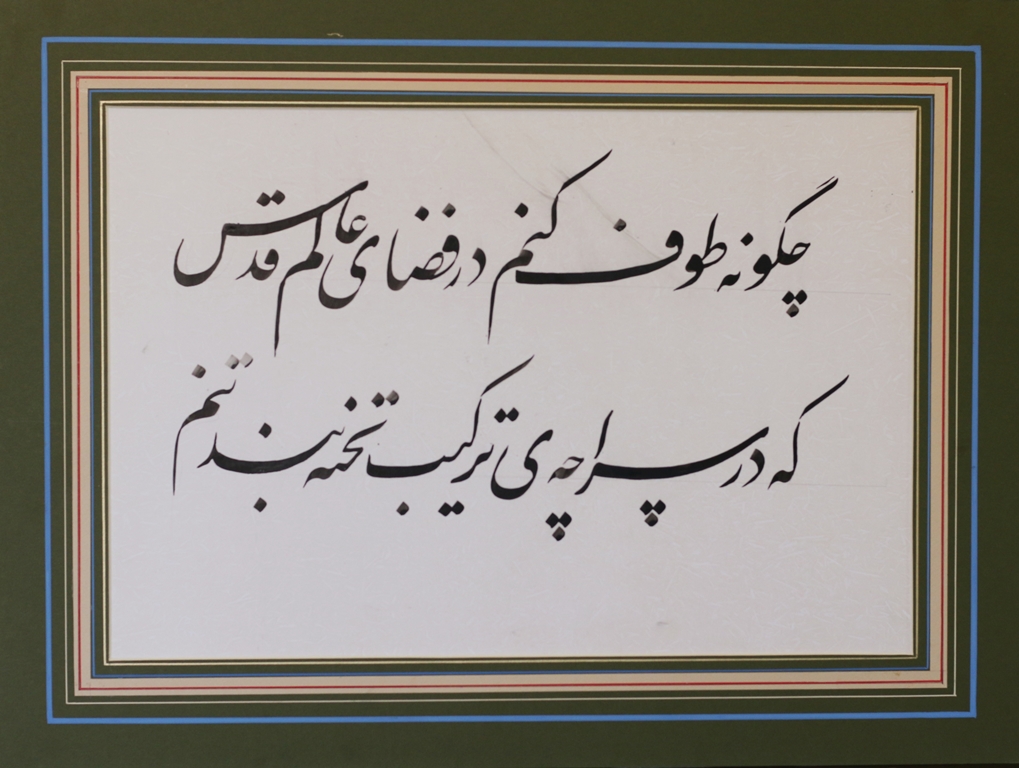 چگونه طوف کنم در فضای عالم قدس
که در سراچه ی ترکیب تخته بند تنم